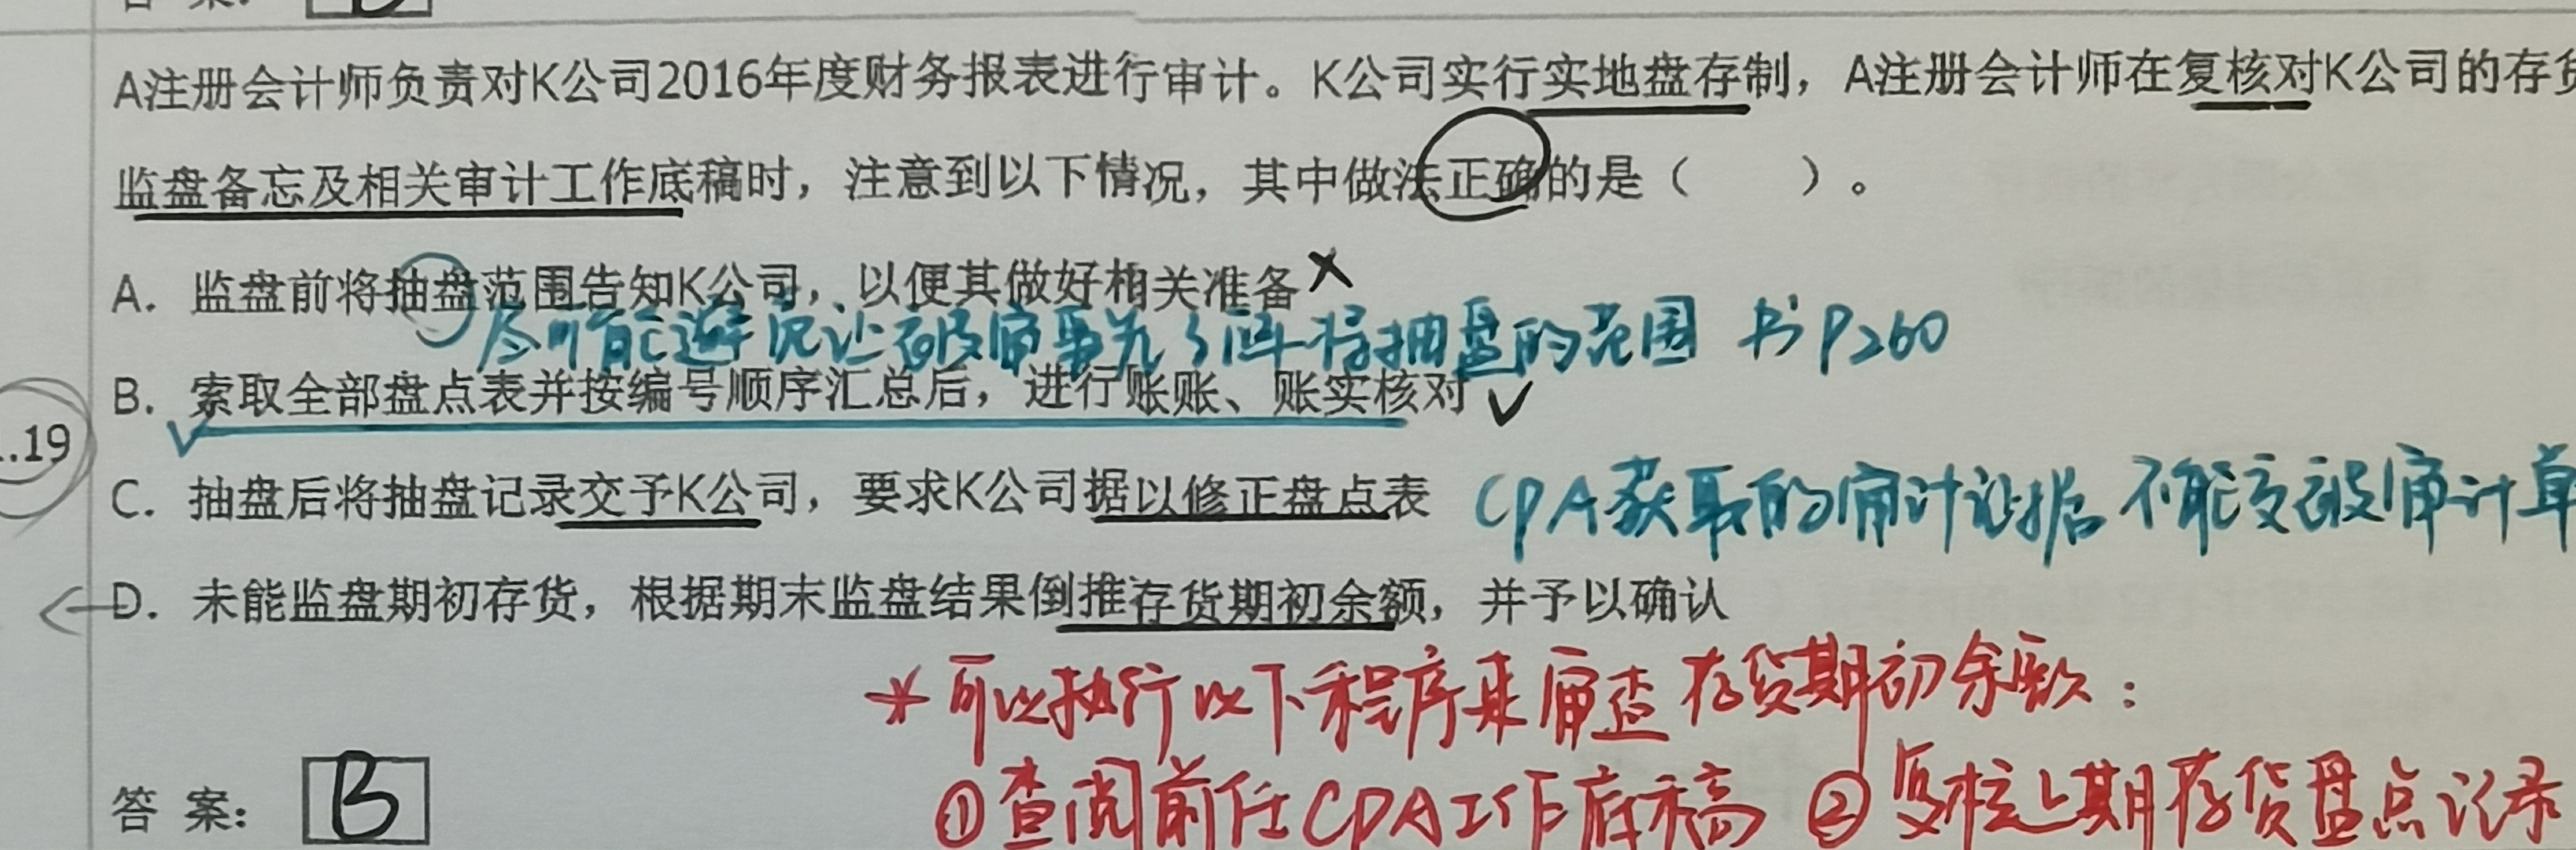 答 案：
A注册会计师负责对K公司2016年度财务报表进行审计。K公司实行实地盘存制，A注册会计师在复核对K公司的存货
监盘备忘及相关审计工作底稿时，注意到以下情况，其中做法正确的是（ ）。
A. 监盘前将抽盘范围告知K公司，以便其做好相关准备 ×
尽可能避免让被审事先了解将抽盘的范围 书P260
B. 索取全部盘点表并按编号顺序汇总后，进行账账、账实核对 ✓
.19
C. 抽盘后将抽盘记录交予K公司，要求K公司据以修正盘点表 CPA获取的审计证据不能交被审计单
D. 未能监盘期初存货，根据期末监盘结果倒推存货期初余额，并予以确认
* 可以执行以下程序来审查存货期初余额：
①查阅前任CPA工作底稿 ②复核上期存货盘点记录
答 案： B